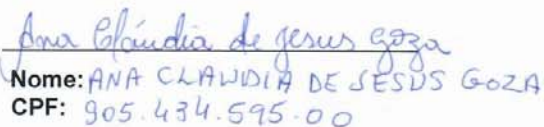 Ana Cláudia de Jesus Goza
Nome: ANA CLAUDIA DE JESUS GOZA
CPF: 905.434.595.00